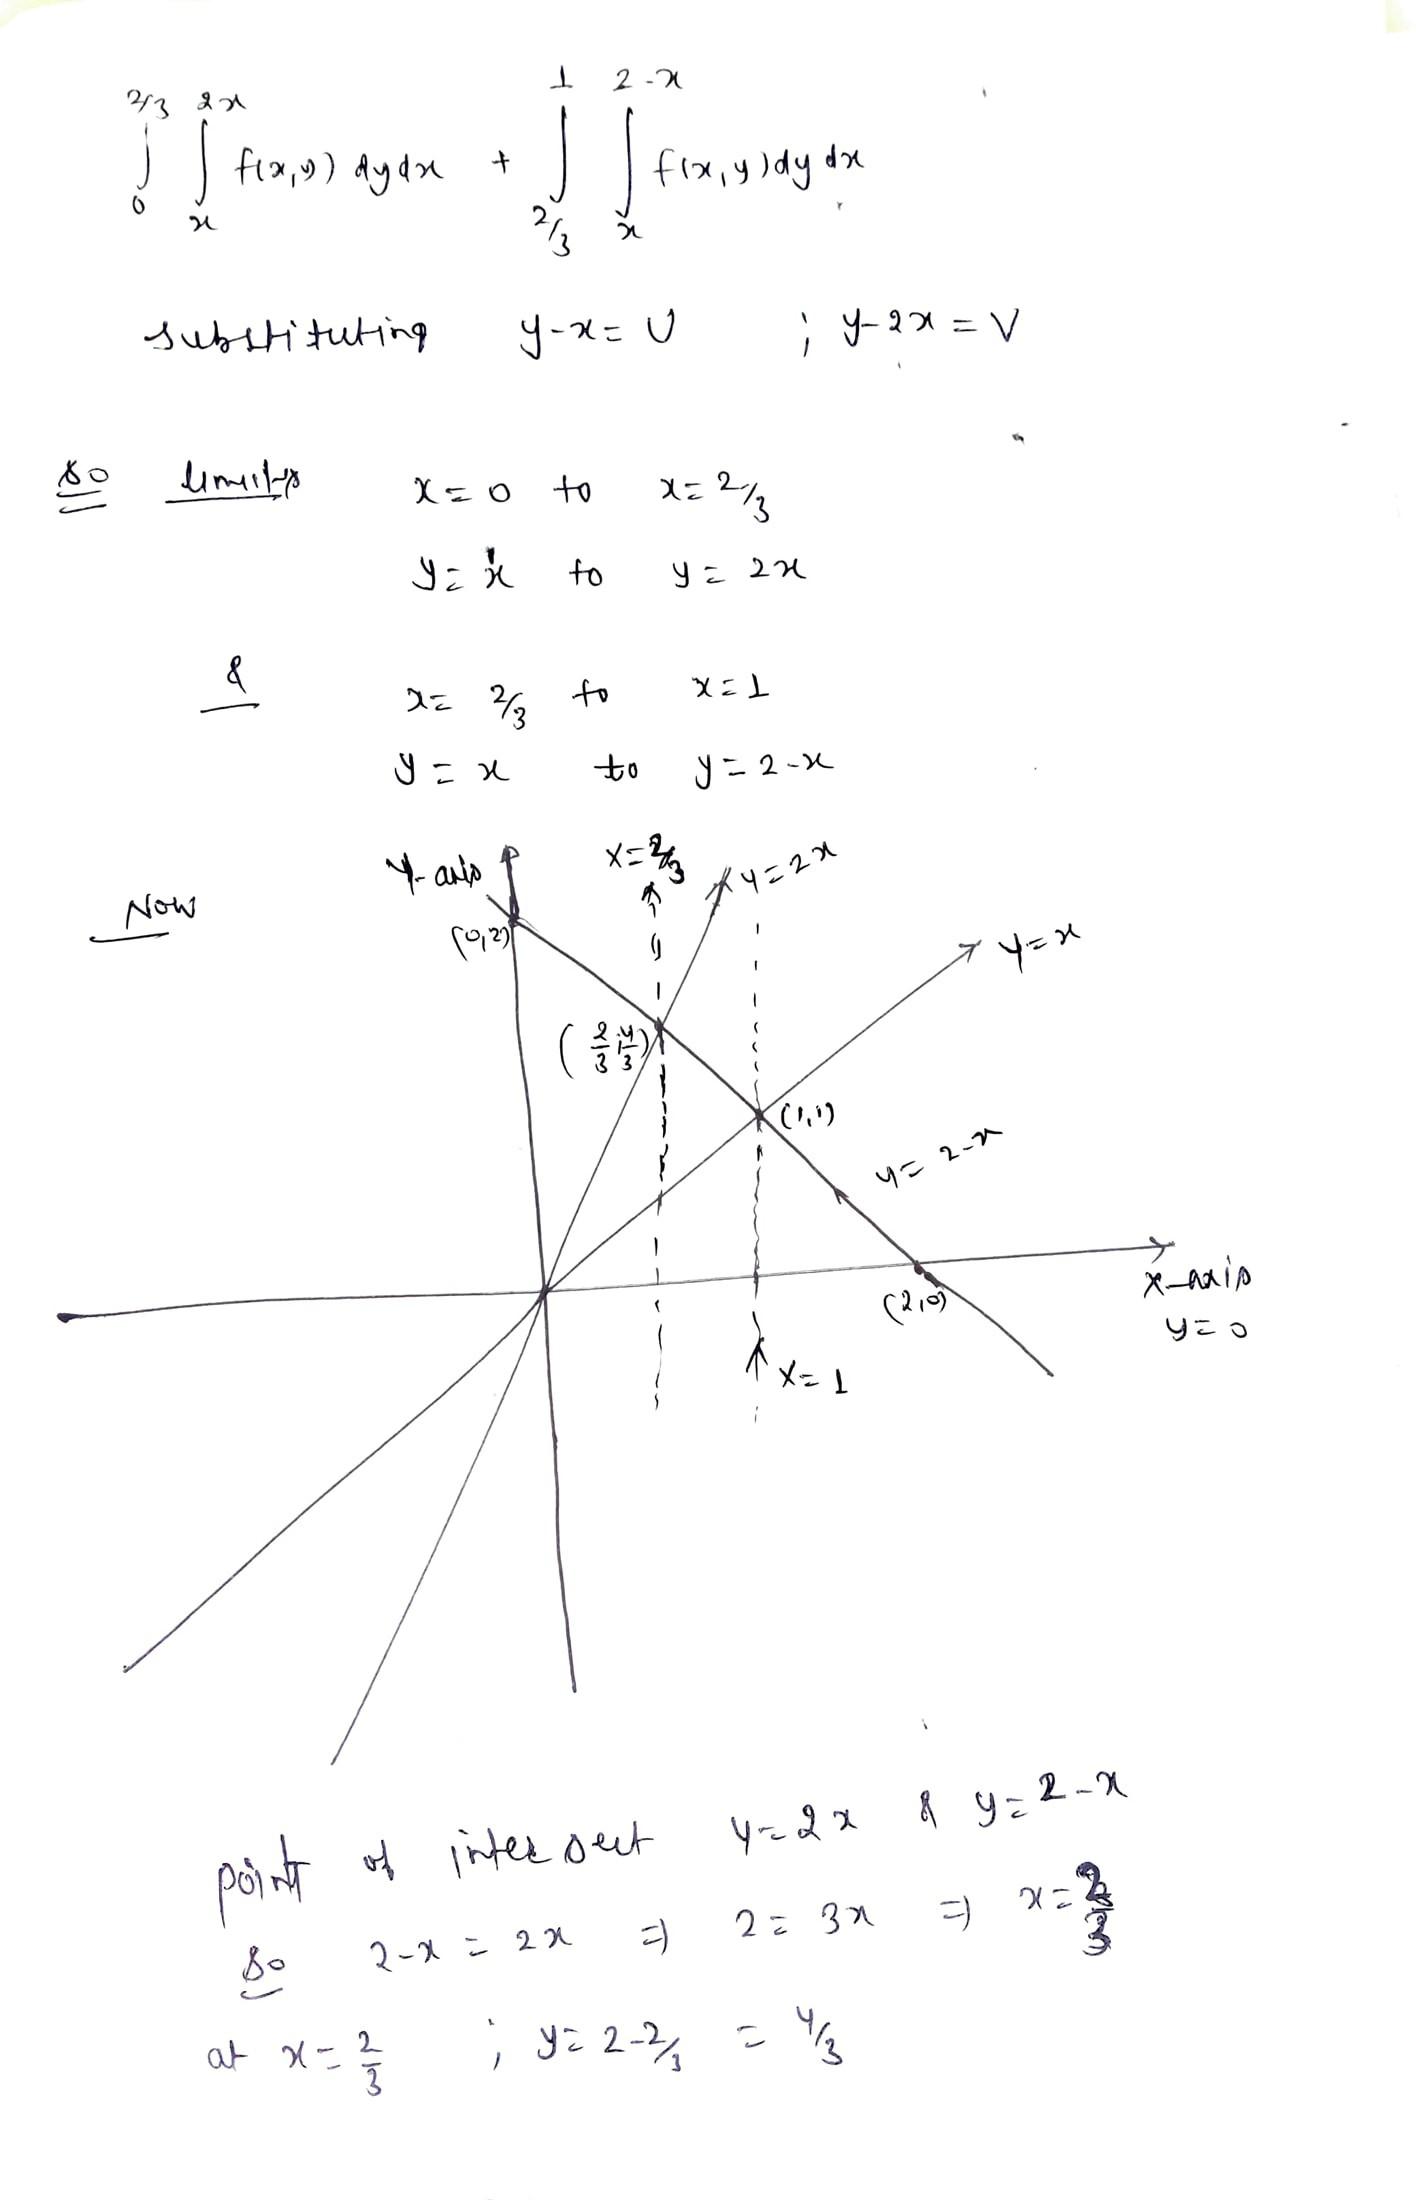 ∫₀^{2/3} ∫ₓ^{2x} f(x,y) dy dx + ∫_{2/3}^{1} ∫ₓ^{2-x} f(x,y) dy dx
substituting y-x = U ; y-2x = V
so limits x = 0 to x = 2/3
y = x to y = 2x
& x = 2/3 to x = 1
y = x to y = 2-x
Now
Y-axis
x = 2/3
y = 2x
(0,2)
y = x
(2/3, 4/3)
(1,1)
y = 2-x
x-axis
y = 0
(2,0)
x = 1
point of intersect y = 2x & y = 2-x
so 2-x = 2x ⇒ 2 = 3x ⇒ x = 2/3
at x = 2/3 ; y = 2-2/3 = 4/3